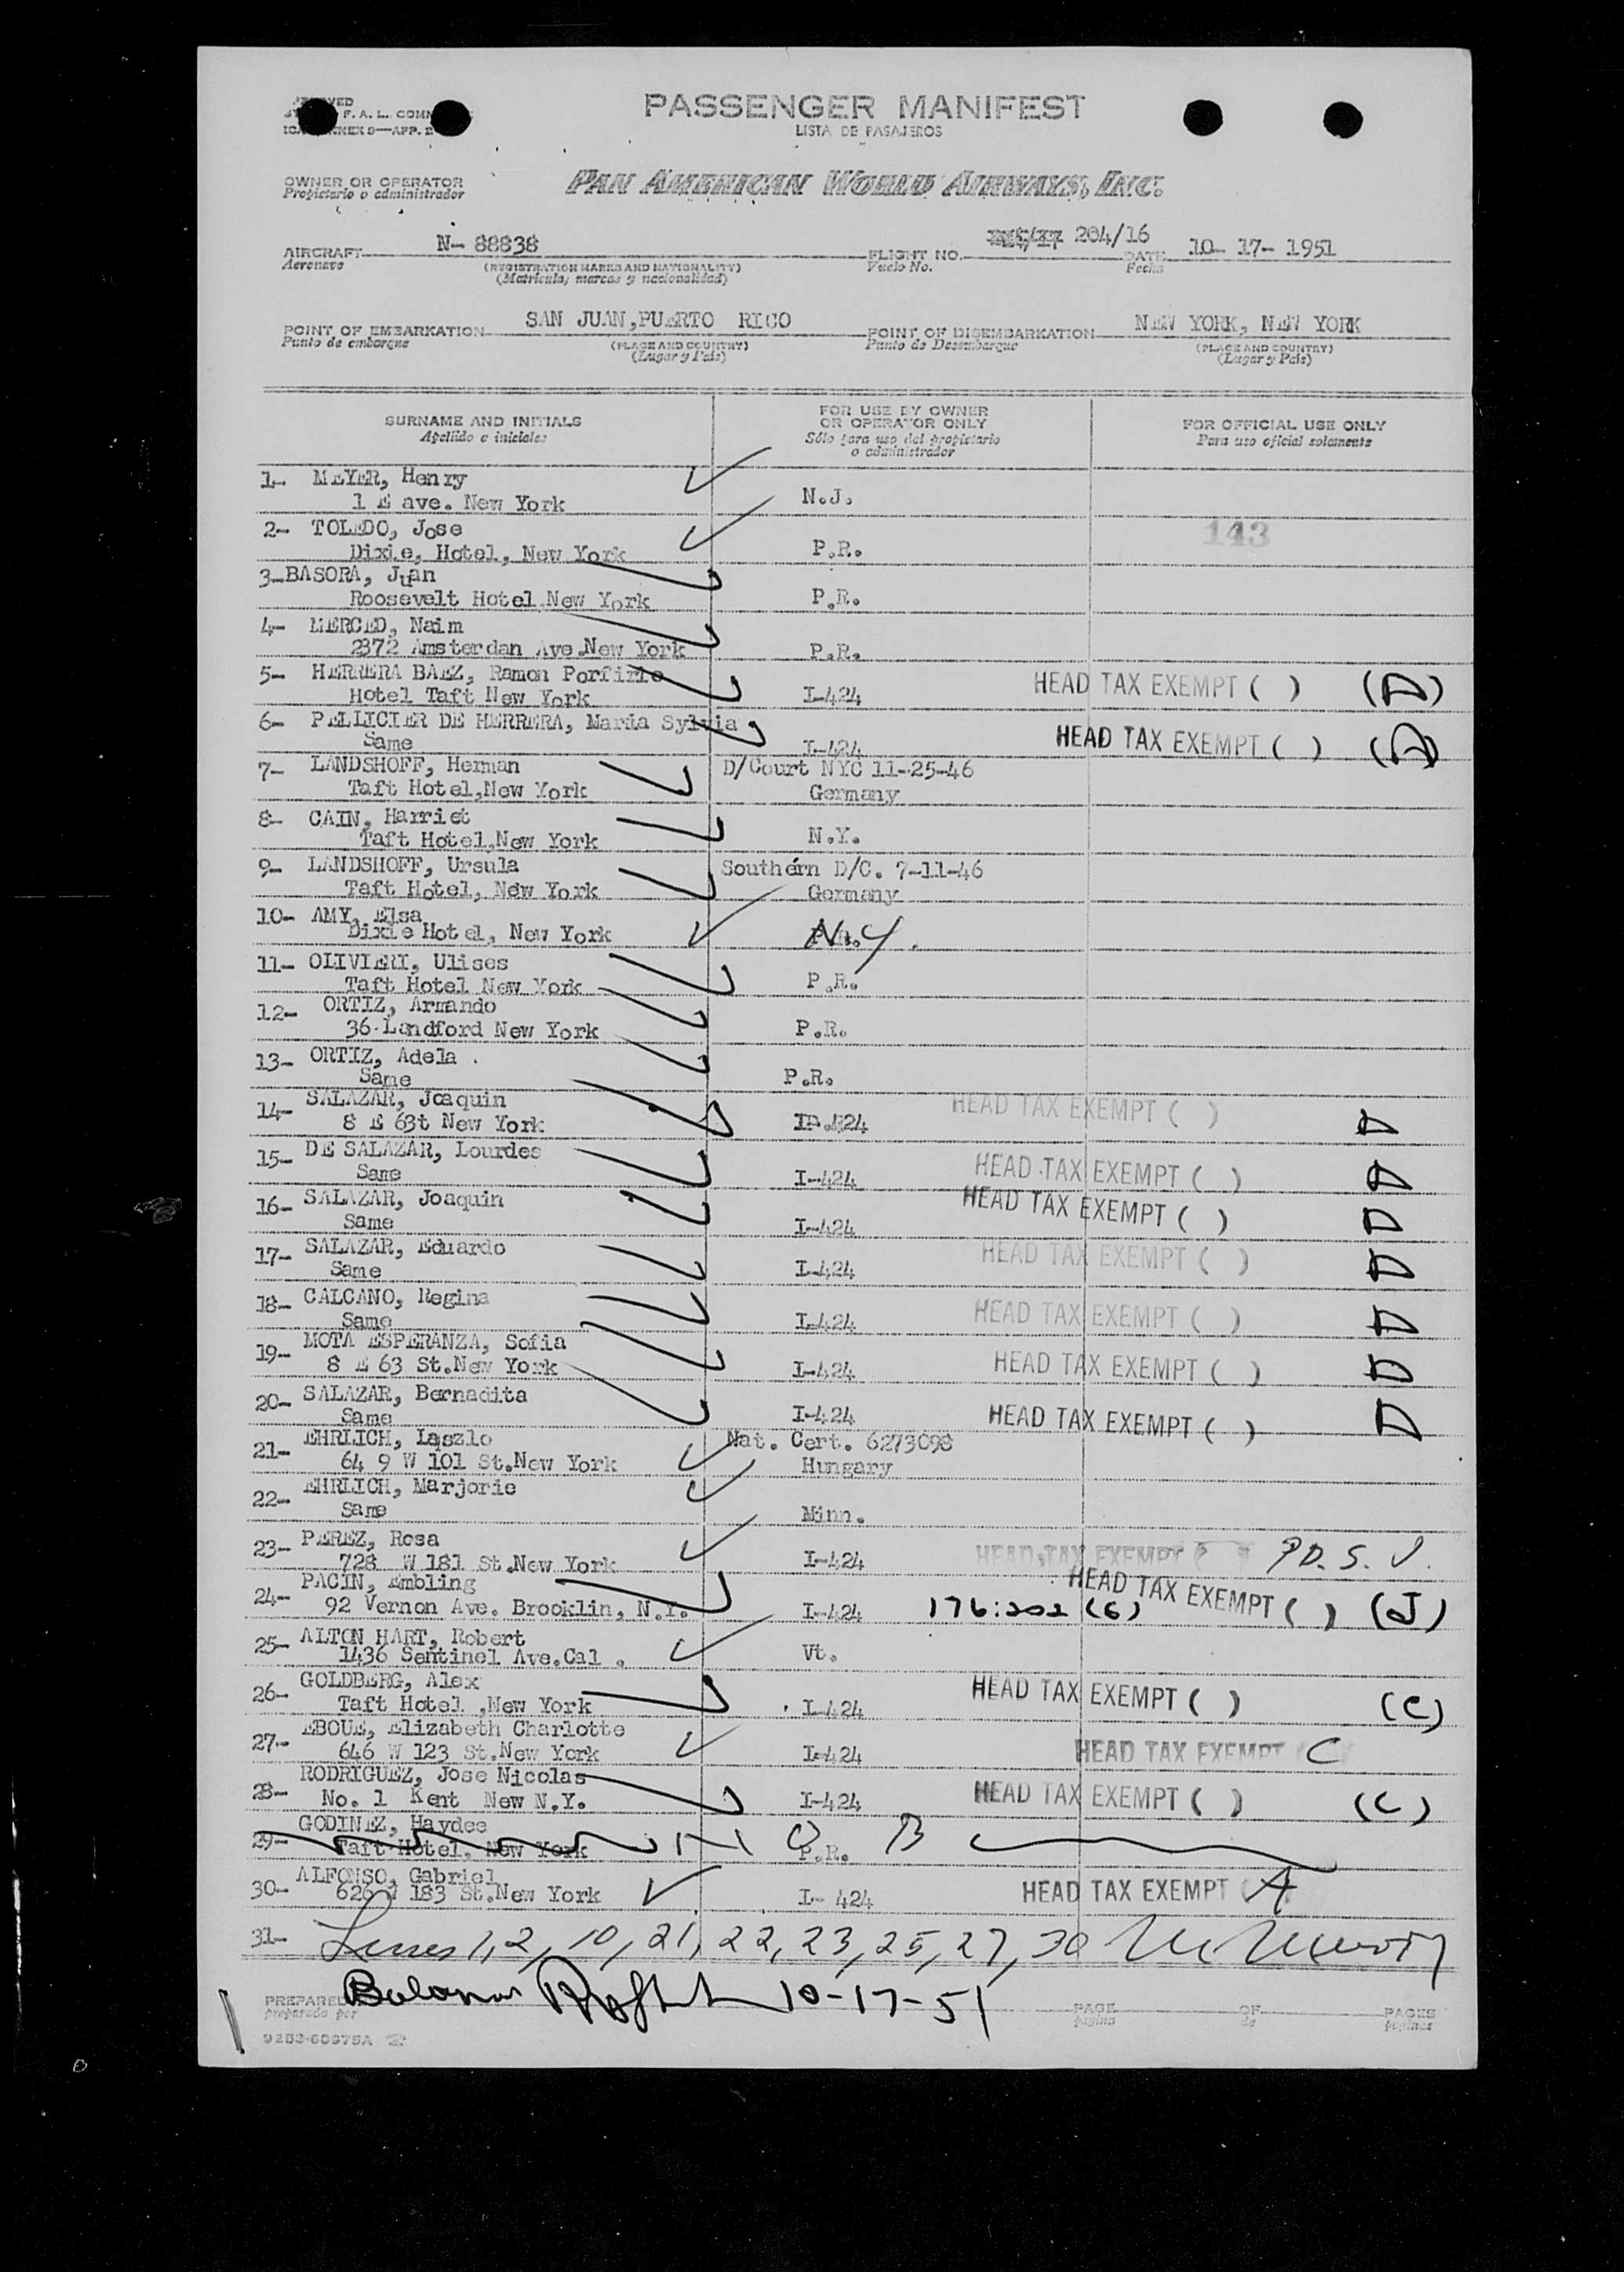 PASSENGER MANIFEST
LISTA DE PASAJEROS
F. A. L. COMM
OWNER OR OPERATOR
Propietario o administrador
PAN AMERICAN WORLD AIRWAYS, INC.
AIRCRAFT N- 88838 FLIGHT NO. 204/16 DATE 10- 17- 1951
Aeronave (REGISTRATION MARKS AND NATIONALITY) Vuelo No. Fecha
(Matricula; marcas y nacionalidad)
POINT OF EMBARKATION SAN JUAN,PUERTO RICO POINT OF DISEMBARKATION NEW YORK, NEW YORK
Punto de embarque (PLACE AND COUNTRY) Punto de Desembarque (PLACE AND COUNTRY)
(Lugar y Pais) (Lugar y Pais)
SURNAME AND INITIALS FOR USE BY OWNER OR OPERATOR ONLY FOR OFFICIAL USE ONLY
Apellido e iniciales Sólo para uso del propietario o administrador Para uso oficial solamente
1- MEYER, Henry
1 E ave. New York N.J.
2- TOLEDO, Jose 143
Dixie, Hotel, New York P.R.
3-BASORA, Juan
Roosevelt Hotel New York P.R.
4- MERCED, Naim
2372 Amsterdan Ave.New York P.R.
5- HERRERA BAEZ, Ramon Porfirio
Hotel Taft New York I-424 HEAD TAX EXEMPT ( ) (D)
6- PELLICIER DE HERRERA, Maria Sylvia
Same I-424 HEAD TAX EXEMPT ( ) (D)
7- LANDSHOFF, Herman D/Court NYC 11-25-46
Taft Hotel,New York Germany
8- CAIN, Harriet
Taft Hotel,New York N.Y.
9- LANDSHOFF, Ursula Southern D/C. 7-11-46
Taft Hotel, New York Germany
10- AMY, Elsa
Dixie Hotel, New York N.Y.
11- OLIVIERI, Ulises
Taft Hotel New York P.R.
12- ORTIZ, Armando
36 Landford New York P.R.
13- ORTIZ, Adela .
Same P.R.
14- SALAZAR, Joaquin HEAD TAX EXEMPT ( )
8 E 63t New York 424 D
15- DE SALAZAR, Lourdes
Same I-424 HEAD TAX EXEMPT ( ) D
16- SALAZAR, Joaquin
Same I-424 HEAD TAX EXEMPT ( ) D
17- SALAZAR, Eduardo
Same I-424 HEAD TAX EXEMPT ( ) D
18- CALCANO, Regina
Same I-424 HEAD TAX EXEMPT ( ) D
19- MOTA ESPERANZA, Sofia
8 E 63 St.New York I-424 HEAD TAX EXEMPT ( ) D
20- SALAZAR, Bernadita
Same I-424 HEAD TAX EXEMPT ( ) D
21- EHRLICH, Laszlo Nat. Cert. 6273098
64 9 W 101 St.New York Hungary
22- EHRLICH, Marjorie
Same Minn.
23- PEREZ, Rosa
728 W 181 St.New York I-424 HEAD TAX EXEMPT PD. S. J.
24- PACIN, Embling
92 Vernon Ave. Brooklin, N.Y. I-424 176:202 (6) HEAD TAX EXEMPT ( ) (J)
25- ALTON HART, Robert
1436 Sentinel Ave.Cal . Vt.
26- GOLDBERG, Alex
Taft Hotel ,New York I-424 HEAD TAX EXEMPT ( ) (C)
27- EBOUE, Elizabeth Charlotte
646 W 123 St.New York I-424 HEAD TAX EXEMPT C
28- RODRIGUEZ, Jose Nicolas
No. 1 Kent New N.Y. I-424 HEAD TAX EXEMPT ( ) (C)
29- GODINEZ, Haydee
Taft Hotel, New York N O B P.R.
30- ALFONSO, Gabriel
626 W 183 St.New York I- 424 HEAD TAX EXEMPT A
31- Lines 1, 2, 10, 21, 22, 23, 25, 27, 30
Balance 10-17-51
PREPARED PAGE OF PAGES
preparado por pagina de paginas
9253-60975A